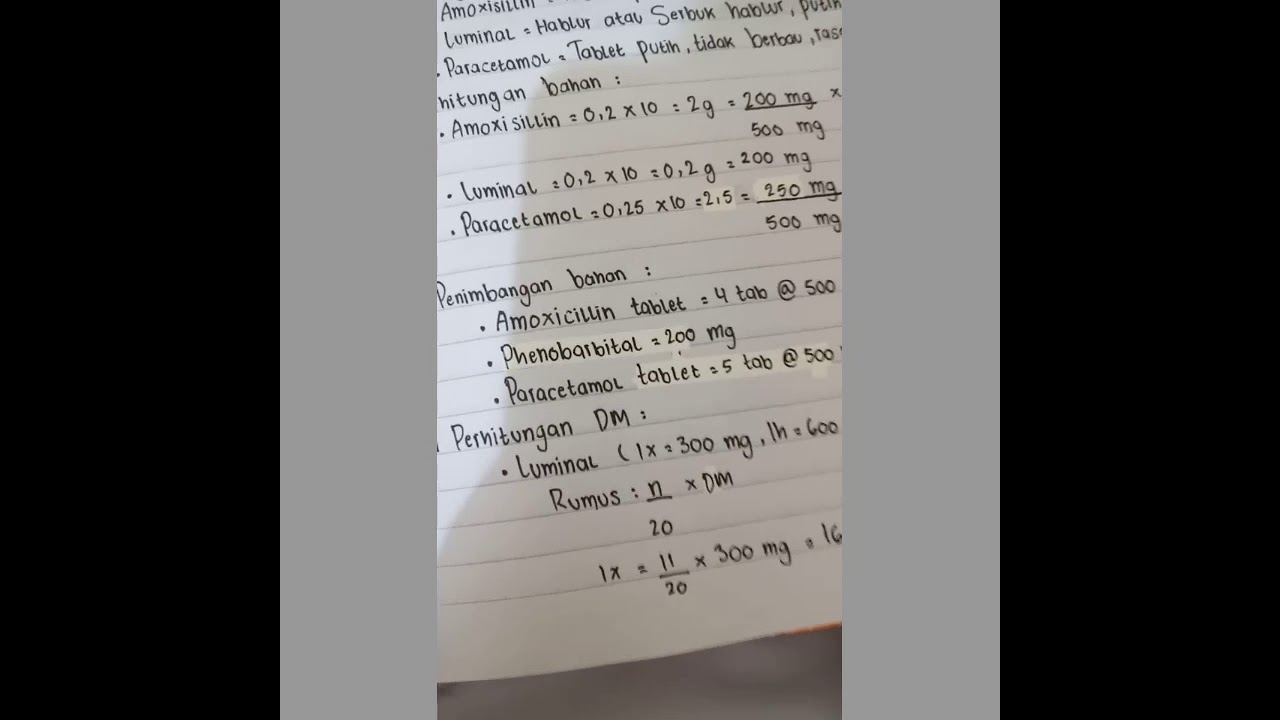 Amoxisillin =
Luminal = Hablur atau Serbuk hablur, putih
. Paracetamol = Tablet putih, tidak berbau, rasa
hitungan bahan :
. Amoxisillin = 0,2 x 10 = 2g = 200 mg x
500 mg
. Luminal = 0,2 x 10 = 0,2 g = 200 mg
. Paracetamol = 0,25 x 10 = 2,5 = 250 mg
500 mg
Penimbangan bahan :
. Amoxicillin tablet = 4 tab @ 500
. Phenobarbital = 200 mg
. Paracetamol tablet = 5 tab @ 500
Perhitungan DM :
. Luminal ( 1x = 300 mg, 1h = 600
Rumus : n x DM
20
1x = 11 x 300 mg = 16
20